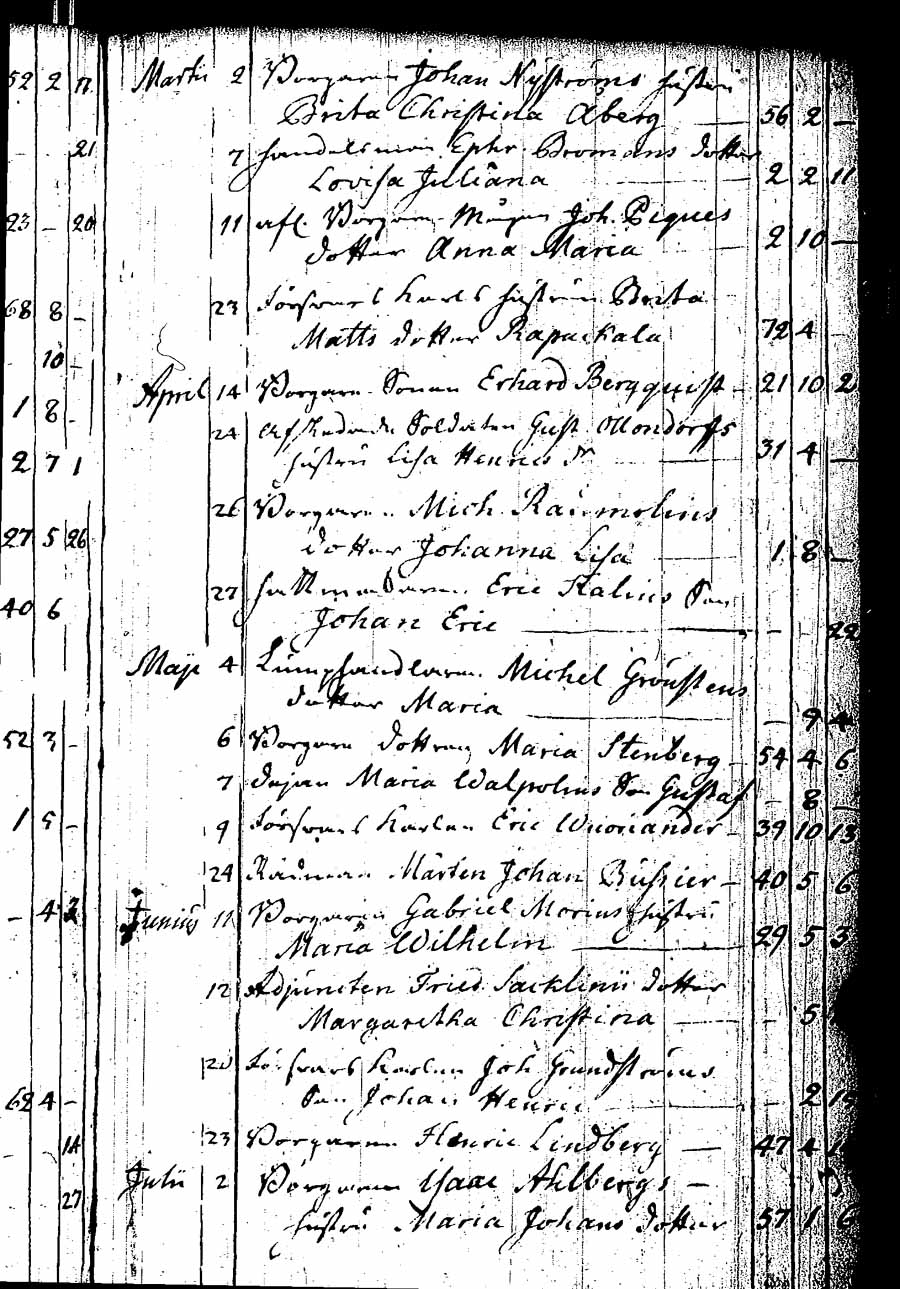 52 2 17
21
23 – 20
68 8 –
10 –
1 8 –
2 7 1
27 5 26
40 6
52 3 –
1 5 –
– 4 2
62 4 –
14
27
Martii 2 Borgaren Johan Nyströms hustru
Brita Christina Åberg — 56 2 —
7 handelsman Ephr. Bromans dotter
Lovisa Juliana — 2 2 11
11 afl. Borgaren Joh. Piques
dotter Anna Maria — 2 10 —
23 Försvars Karls hustrun Brita
Matts dotter Rapackala 72 4 —
April 14 Borgare Sonen Erhard Bergquist – 21 10 2
24 Afskedade Soldaten Gust. Mondorfs
hustru Lisa Henrics dr — 31 4 —
26 Borgaren Mich. Raumolins
dotter Johanna Lisa — 1 8 —
27 hattmakaren Eric Kalins Son
Johan Eric — – – 22
Maji 4 Lumphandlaren Michel Grönstens
dotter Maria — – 9 4
6 Borgare dottren Maria Stenberg – 54 4 6
7 Pejan Maria Walpolins Son Gustaf – 8 –
9 Försvars Karlen Eric Wuoriander – 39 10 13
24 Rådman Mårten Johan Bussier – 40 5 6
Junius 11 Borgaren Gabriel Morins hustru
Maria Wilhelm — 29 5 3
12 Adjuncten Fried. Sacklinii dotter
Margaretha Christina — – 5
20 Försvars Karlen Joh. Grundströms
Son Johan Henric — – 2
23 Borgaren Henric Lindberg — 47 4
Julii 2 Borgaren Isaac Ahlbergs –
hustru Maria Johans dotter 57 1 6